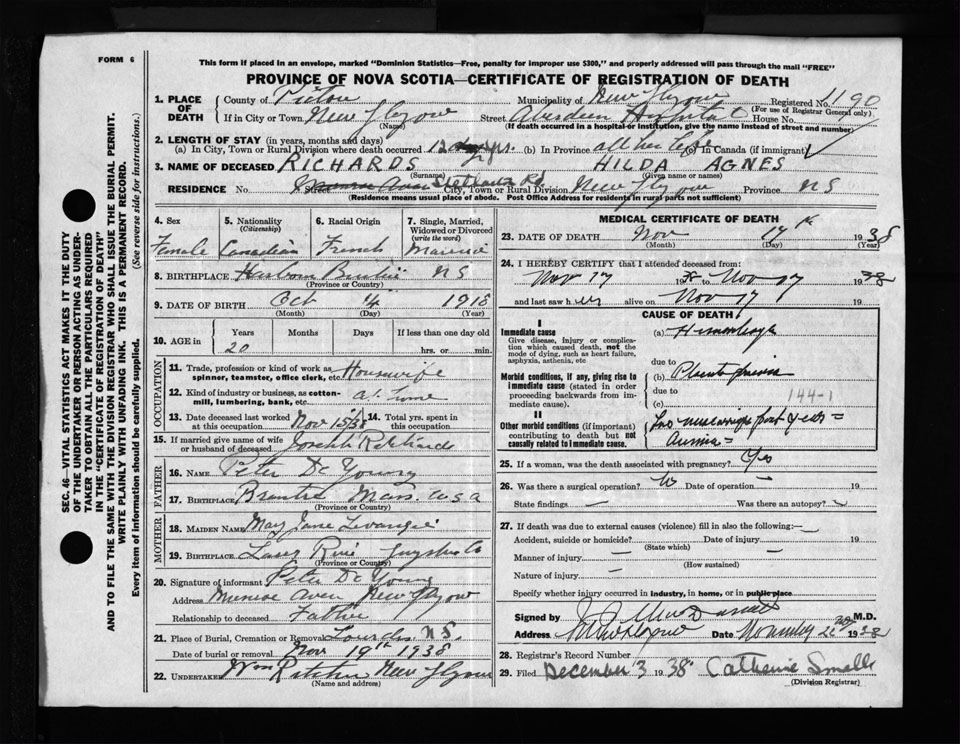 FORM 6
This form if placed in an envelope, marked "Dominion Statistics—Free, penalty for improper use $300," and properly addressed will pass through the mail "FREE"
PROVINCE OF NOVA SCOTIA—CERTIFICATE OF REGISTRATION OF DEATH
SEC. 46—VITAL STATISTICS ACT MAKES IT THE DUTY
OF THE UNDERTAKER OR PERSON ACTING AS UNDER-
TAKER TO OBTAIN ALL THE PARTICULARS REQUIRED
IN THE "CERTIFICATE OF REGISTRATION OF DEATH"
AND TO FILE THE SAME WITH THE DIVISION REGISTRAR WHO SHALL ISSUE THE BURIAL PERMIT.
WRITE PLAINLY WITH UNFADING INK. THIS IS A PERMANENT RECORD.
Every item of information should be carefully supplied. (See reverse side for instructions.)
1. PLACE OF DEATH
County of Pictou Municipality of New Glasgow Registered No. 1190
(For use of Registrar General only)
If in City or Town New Glasgow Street Aberdeen Hospital House No.
(Name) (If death occurred in a hospital or institution, give the name instead of street and number)
2. LENGTH OF STAY (in years, months and days)
(a) In City, Town or Rural Division where death occurred 12 yrs. (b) In Province all her life (c) In Canada (if immigrant)
3. NAME OF DECEASED RICHARDS HILDA AGNES
(Surname) (Given name or names)
RESIDENCE No. Street City, Town or Rural Division New Glasgow Province NS
(Residence means usual place of abode. Post Office Address for residents in rural parts not sufficient)
4. Sex
Female
5. Nationality (Citizenship)
Canadian
6. Racial Origin
French
7. Single, Married, Widowed or Divorced (write the word)
Married
8. BIRTHPLACE Harbour Bouchie NS
(Province or Country)
9. DATE OF BIRTH Oct 14 1918
(Month) (Day) (Year)
10. AGE in Years Months Days If less than one day old
20 hrs. or min.
OCCUPATION
11. Trade, profession or kind of work as spinner, teamster, office clerk, etc. Housewife
12. Kind of industry or business, as cotton-mill, lumbering, bank, etc. at home
13. Date deceased last worked at this occupation Nov 15/38 14. Total yrs. spent in this occupation
15. If married give name of wife or husband of deceased Joseph Richards
FATHER
16. NAME Peter De Young
17. BIRTHPLACE Mass USA
(Province or Country)
MOTHER
18. MAIDEN NAME May Jane Levangie
19. BIRTHPLACE Guysboro Co
(Province or Country)
20. Signature of informant Peter De Young
Address Munroe Aven New Glasgow
Relationship to deceased Father
21. Place of Burial, Cremation or Removal Lourdes NS.
Date of burial or removal Nov 19th 1938
22. UNDERTAKER Wm New Glasgow
(Name and address)
MEDICAL CERTIFICATE OF DEATH
23. DATE OF DEATH Nov 17th 1938
(Month) (Day) (Year)
24. I HEREBY CERTIFY that I attended deceased from:
Nov 17 1938 to Nov 17 1938
and last saw her alive on Nov 17 19
CAUSE OF DEATH
I
Immediate cause
Give disease, injury or complication which caused death, not the mode of dying, such as heart failure, asphyxia, asthenia, etc
(a) Hemorrhage
due to
Morbid conditions, if any, giving rise to immediate cause (stated in order proceeding backwards from immediate cause).
(b) Placenta praevia
due to 144-1
(c)
II
Other morbid conditions (if important) contributing to death but not causally related to immediate cause.
Two miscarriages past years
25. If a woman, was the death associated with pregnancy? Yes
26. Was there a surgical operation? No Date of operation - 19
State findings - Was there an autopsy?
27. If death was due to external causes (violence) fill in also the following:—
Accident, suicide or homicide? Date of injury 19
(State which)
Manner of injury —
(How sustained)
Nature of injury —
Specify whether injury occurred in Industry, in home, or in public place
Signed by MacDonald M.D.
Address New Glasgow Date November 22 1938
28. Registrar's Record Number
29. Filed December 3 1938 Catherine Smalls
(Division Registrar)